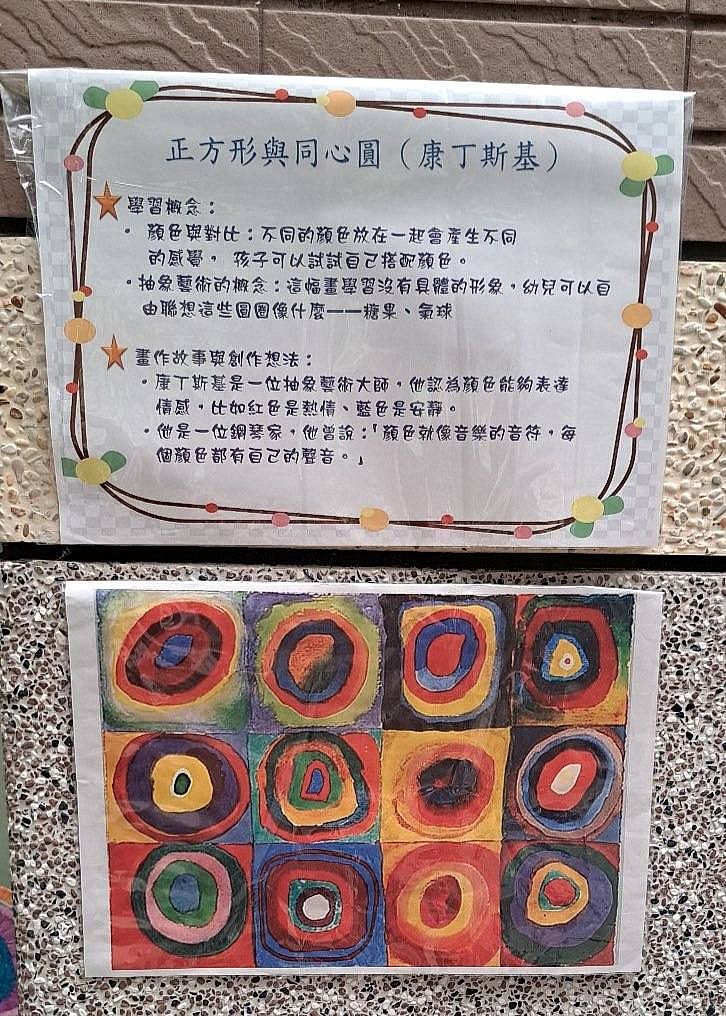 正方形與同心圓（康丁斯基）
學習概念：
• 顏色與對比：不同的顏色放在一起會產生不同
的感覺， 孩子可以試試自己搭配顏色。
•抽象藝術的概念：這幅畫學習沒有具體的形象，幼兒可以自
由聯想這些圓圈像什麼——糖果、氣球
畫作故事與創作想法：
•康丁斯基是一位抽象藝術大師，他認為顏色能夠表達
情感，比如紅色是熱情、藍色是安靜。
•他是一位鋼琴家，他曾說：「顏色就像音樂的音符，每
個顏色都有自己的聲音。」